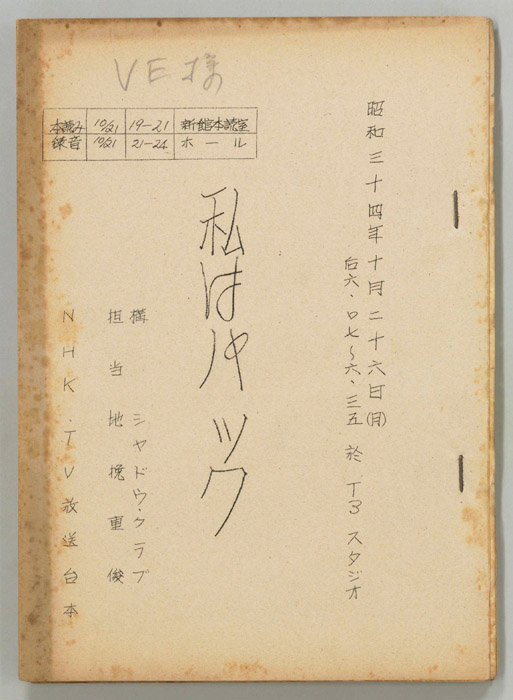 VE様
本読み 10/21 19-21 新館本読室
録音 10/21 21-24 ホール
昭和三十四年十月二十六日(月)
后六、〇七〜六、三五 於 T3スタジオ
私はパック
構 シャドウ・クラブ
担当 地挽重俊
NHK・TV放送台本